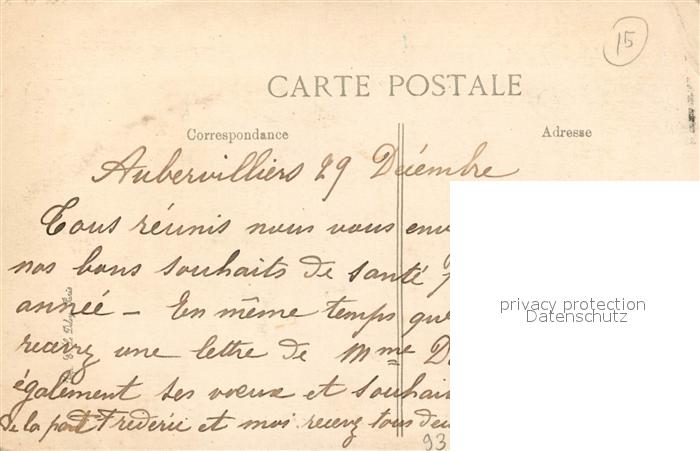 15
CARTE POSTALE
Correspondance
Adresse
Aubervilliers 29 Décembre
Tous réunis nous vous env
nos bons souhaits de santé
année - En même temps que
recevrez une lettre de Mme D
également ses vœux et souhai
de la part Frédéric et moi recevez tous deu
93
privacy protection
Datenschutz